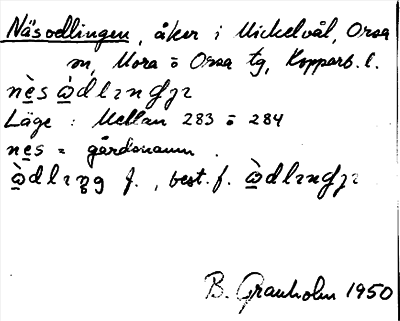 Näsodlingen, åker i Mickelvål, Orsa
sn, Mora o Orsa tg, Kopparb. l.
Läge : Mellan 283 o 284
nes = gårdsnamn.
f., best. f.
B. Granholm 1950